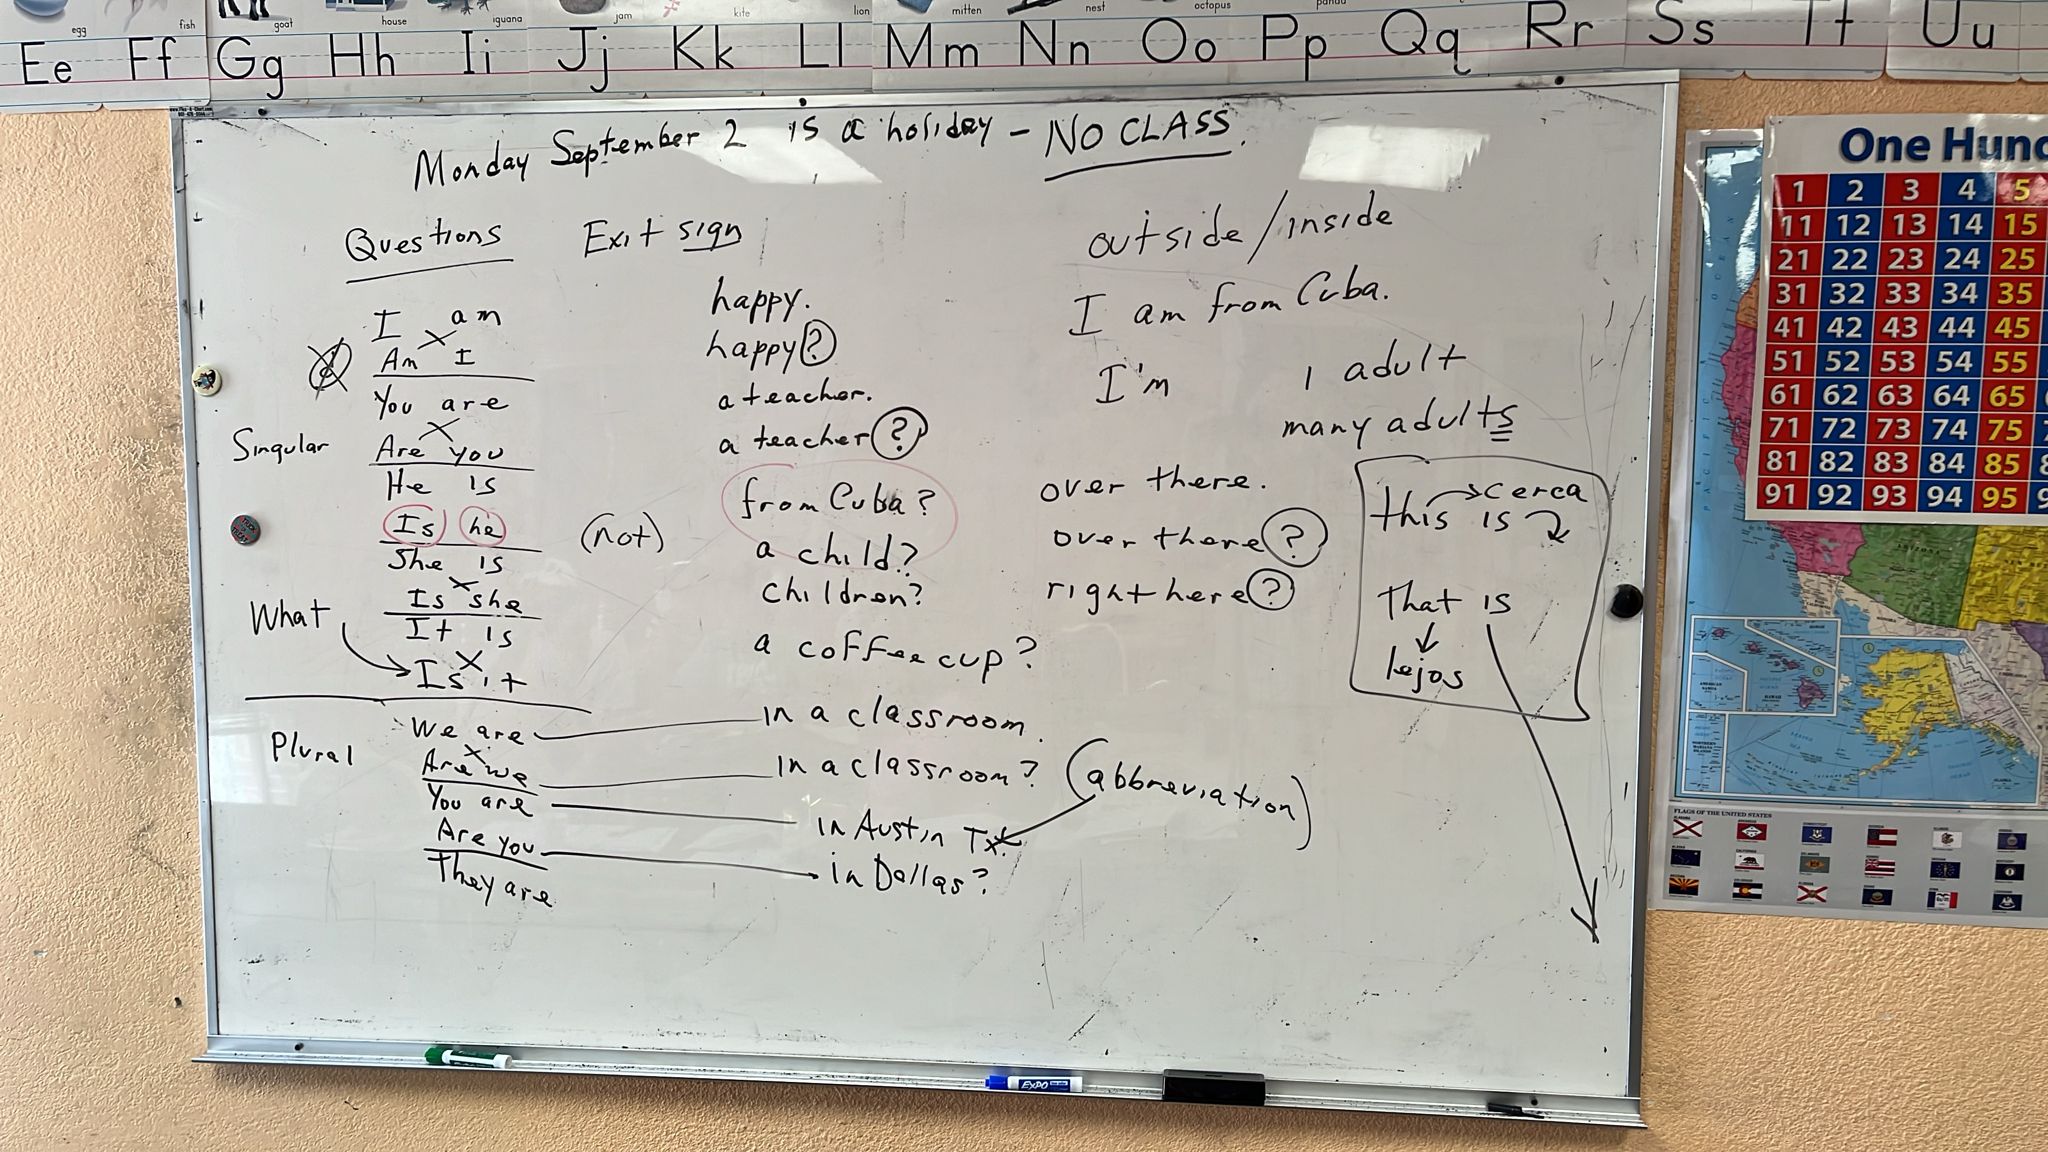 egg fish goat house iguana jam kite lion mitten nest octopus panda
Ee Ff Gg Hh Ii Jj Kk Ll Mm Nn Oo Pp Qq Rr Ss Tt Uu
Monday September 2 is a holiday - NO CLASS.
Questions
Exit sign
outside/inside
I am
Am I
You are
Are you
He is
Is he
She is
Is she
It is
Is it
Singular
What
(not)
happy.
happy?
a teacher.
a teacher?
from Cuba?
a child?
children?
a coffee cup?
I am from Cuba.
I'm
1 adult
many adults
over there.
over there?
right here?
this is
cerca
That is
lejos
Plural
We are
Are we
You are
Are you
They are
in a classroom.
in a classroom?
in Austin Tx.
in Dallas?
(abbreviation)
EXPO
One Hund
1 2 3 4 5
11 12 13 14 15
21 22 23 24 25
31 32 33 34 35
41 42 43 44 45
51 52 53 54 55
61 62 63 64 65
71 72 73 74 75
81 82 83 84 85
91 92 93 94 95
ARIZONA
FLAGS OF THE UNITED STATES